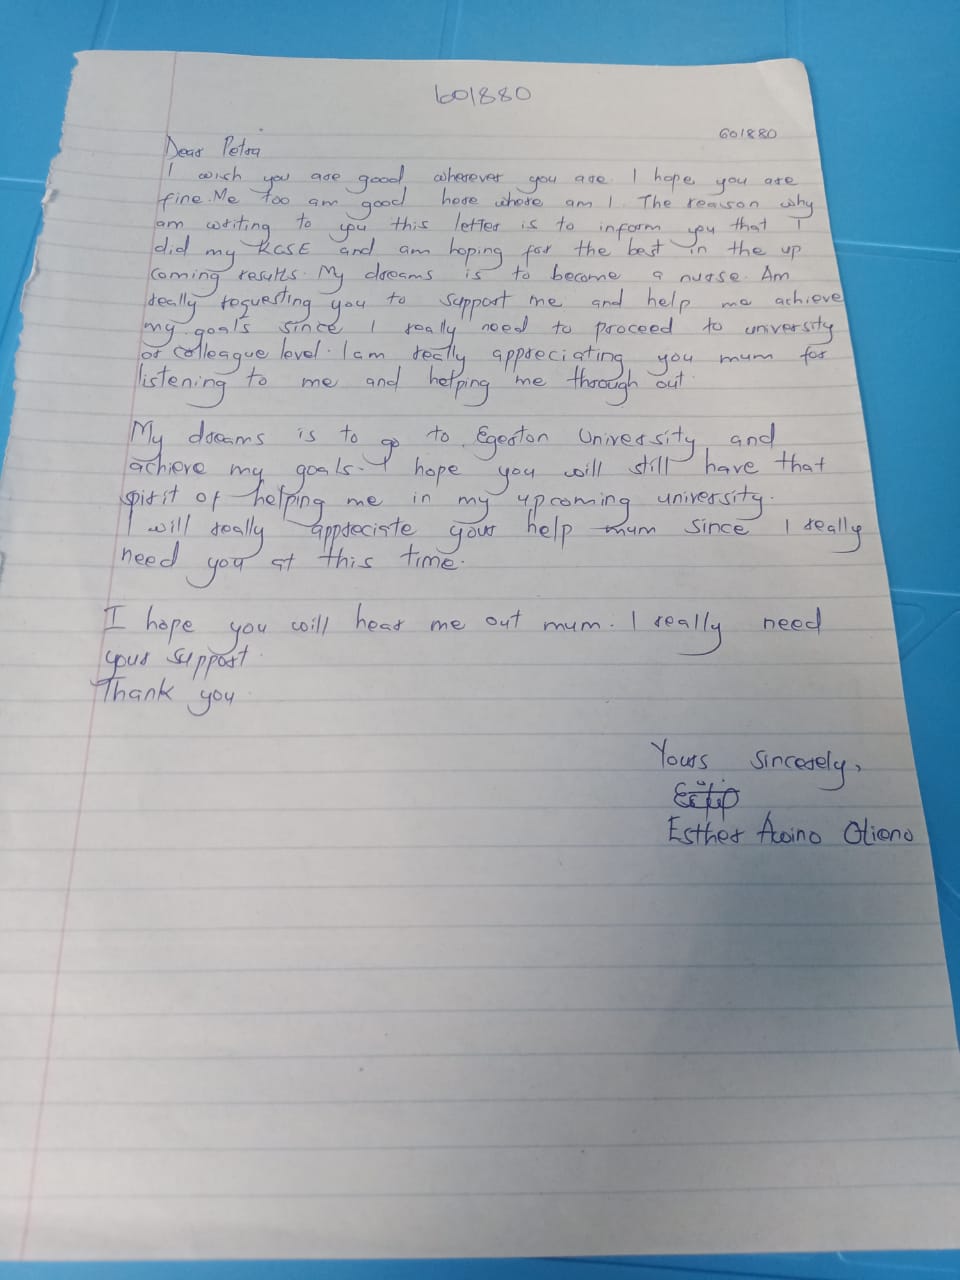 601880
601880
Dear Petra
I wish you are good wherever you are. I hope you are
fine. Me too am good here where am I. The reason why
am writing to you this letter is to inform you that I
did my KCSE and am hoping for the best in the up
coming results. My dreams is to become a nurse. Am
really requesting you to support me and help me achieve
my goals since I really need to proceed to university
or colleague level. I am really appreciating you mum for
listening to me and helping me through out.
My dreams is to go to Egerton University and
achieve my goals. I hope you will still have that
spirit of helping me in my upcoming university.
I will really appreciate your help mum since I really
need you at this time.
I hope you will hear me out mum. I really need
your support.
Thank you.
Yours sincerely,
Esther Awino Otieno